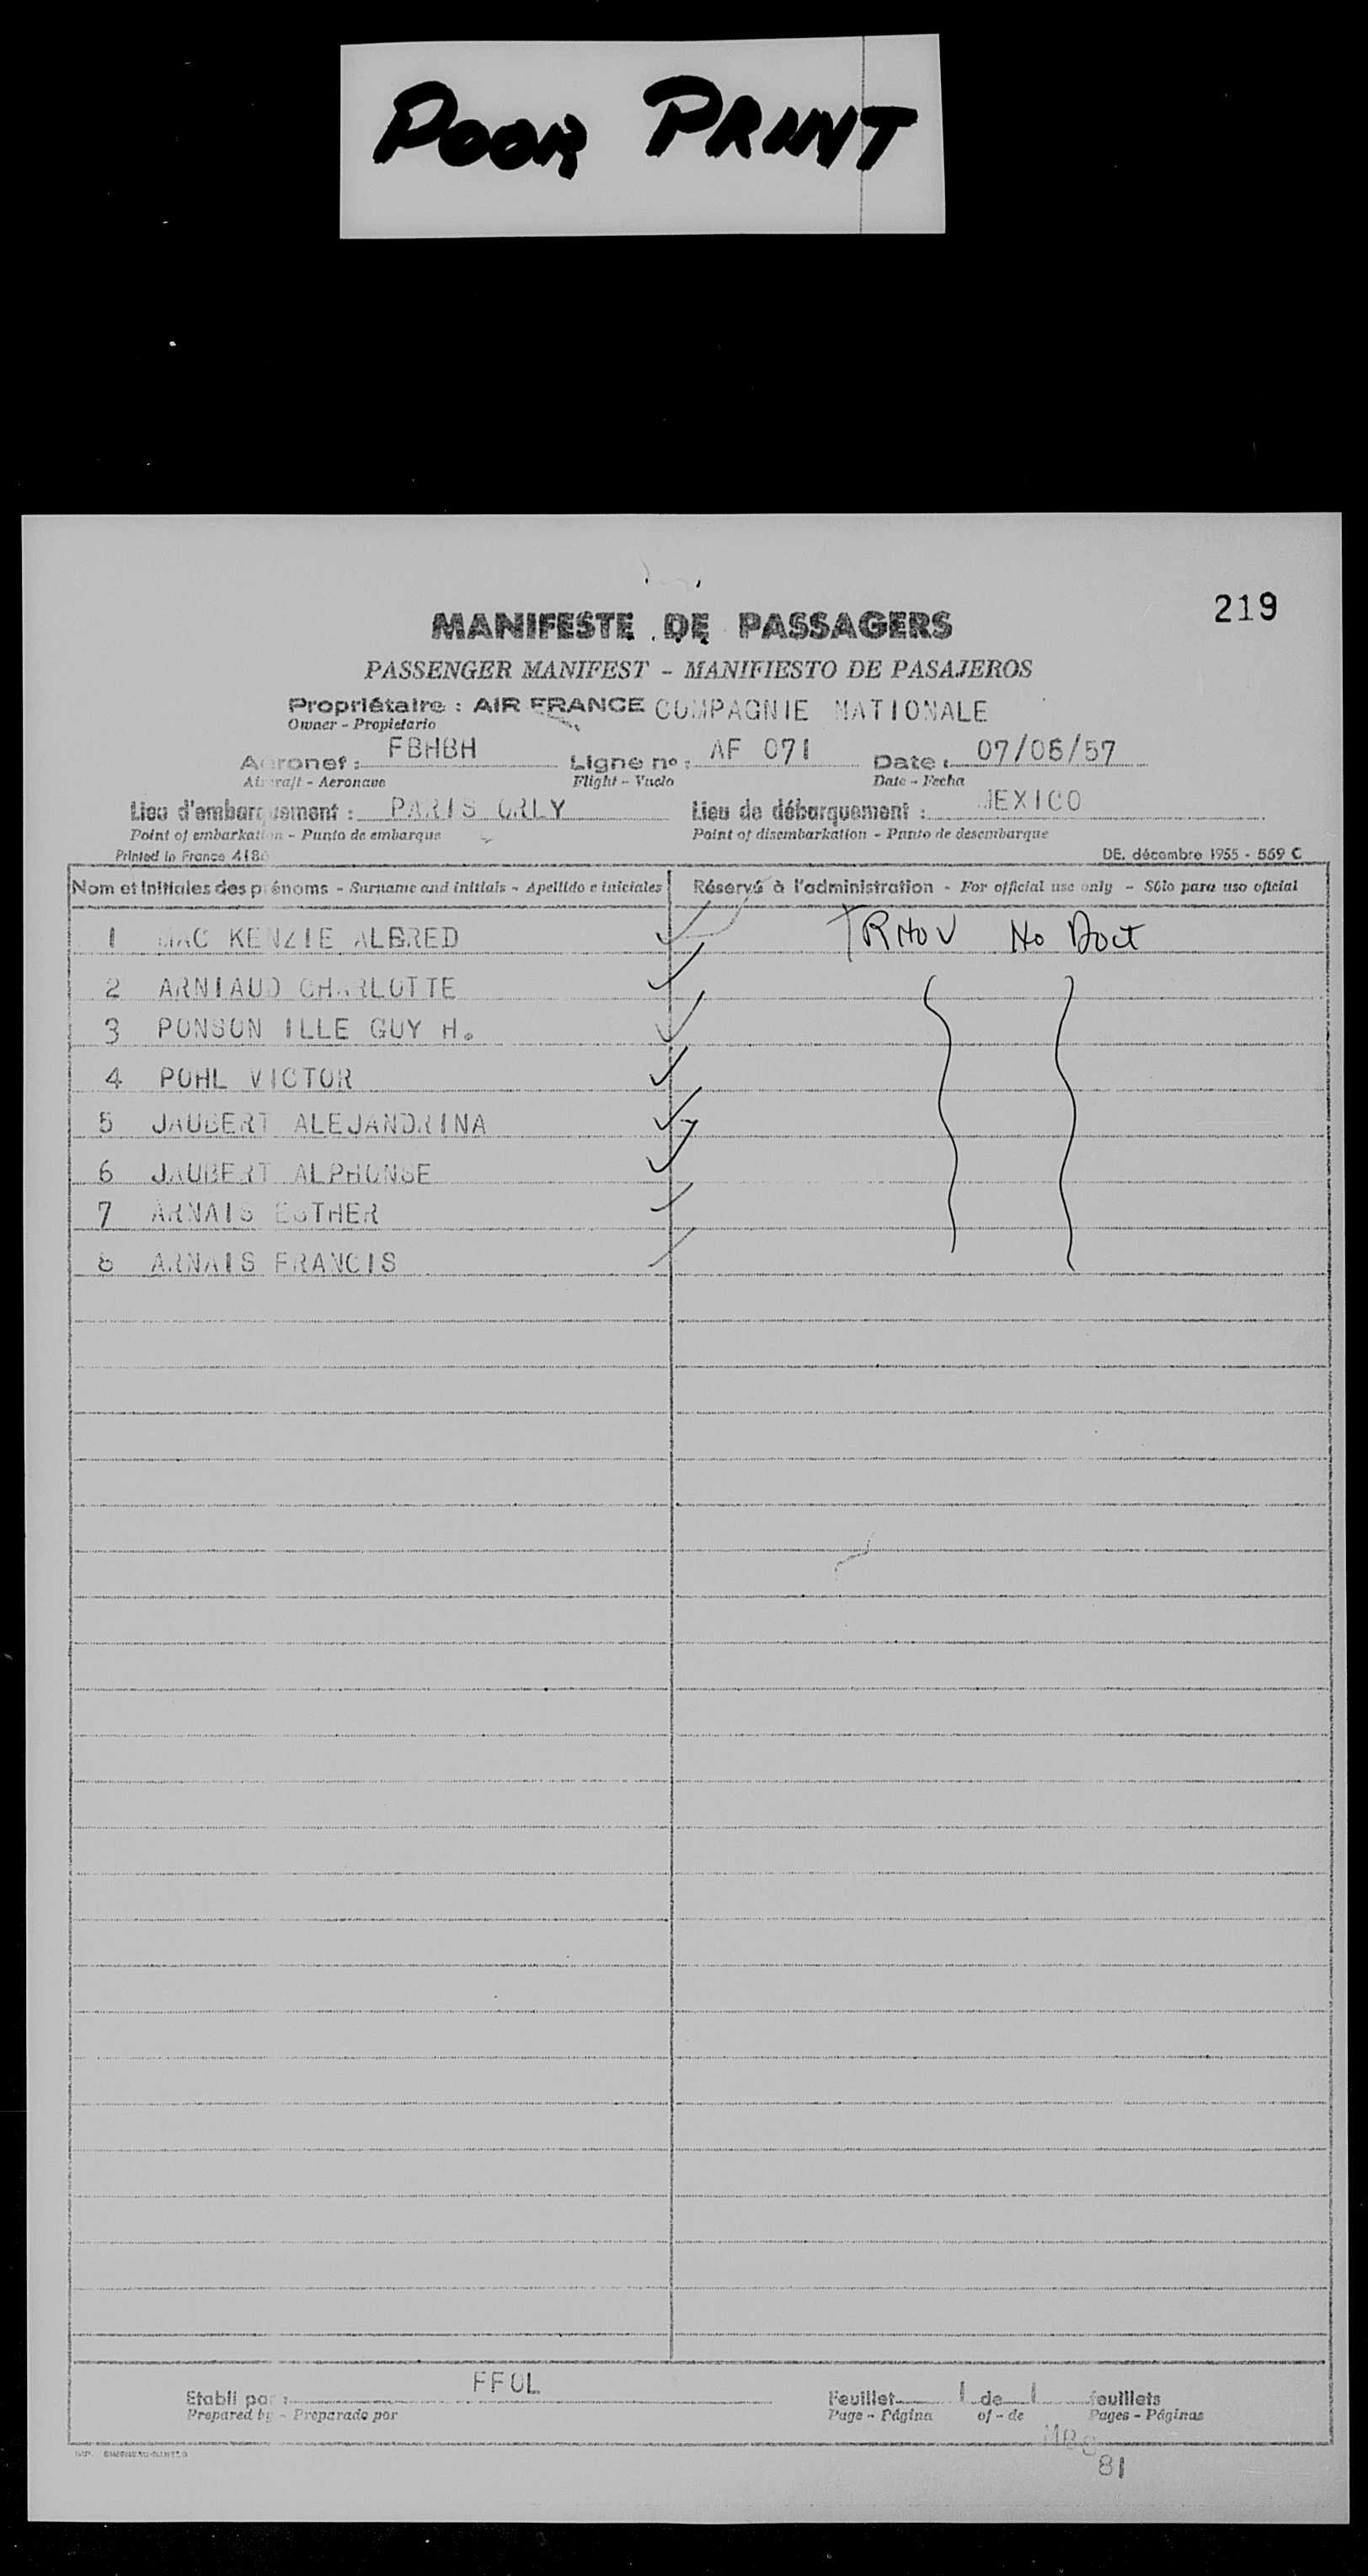 POOR PRINT
219
MANIFESTE DE PASSAGERS
PASSENGER MANIFEST - MANIFIESTO DE PASAJEROS
Propriétaire : AIR FRANCE COMPAGNIE NATIONALE
Owner - Propietario
Aéronef : FBHBH Ligne nº : AF 071 Date : 07/06/57
Aircraft - Aeronave Flight - Vuelo Date - Fecha
Lieu d'embarquement : PARIS ORLY Lieu de débarquement : MEXICO
Point of embarkation - Punto de embarque Point of disembarkation - Punto de desembarque
Printed in France DE. décembre 1955 - 559 C
Nom et initiales des prénoms - Surname and initials - Apellido e iniciales Réservé à l'administration - For official use only - Sólo para uso oficial
1 MAC KENZIE ALBRED No Doct
2 ARNIAUD CHARLOTTE
3 PONSON ILLE GUY H.
4 POHL VICTOR
5 JAUBERT ALEJANDRINA
6 JAUBERT ALPHONSE
7 ARNAIS ESTHER
8 ARNAIS FRANCIS
Etabli par : FFOL Feuillet 1 de 1 feuillets
Prepared by - Preparado por Page - Página of - de Pages - Páginas
81